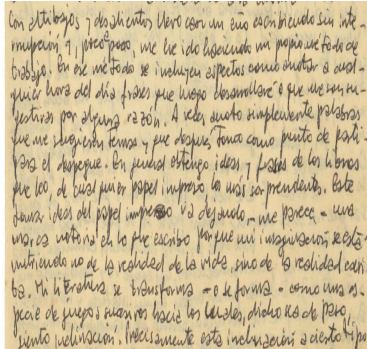 Con altibajos y desalientos llevo casi un año escribiendo sin inte-
rrupción y, poco a poco, me he ido haciendo mi propio método de
trabajo. En ese método se incluyen aspectos como anotar a cual-
quier hora del día frases que luego desarrollaré o que me son su-
gestivas por alguna razón. A veces anoto simplemente palabras
que me sugieren temas y que después tomo como punto de parti-
para el despegue. En general obtengo ideas y frases de los libros
que leo, de cualquier papel impreso los más sorprendentes. Este
tomar ideas del papel impreso va dejando - me parece - una
marca notoria en lo que escribo porque mi imaginación se está
nutriendo no de la realidad de la vida, sino de la realidad escri-
ta. Mi literatura se transforma - o se forma - como una es-
pecie de juegos suntuarios hacia los cuales, dicho sea de paso,
siento inclinación. Precisamente esta inclinación a cierto tipo